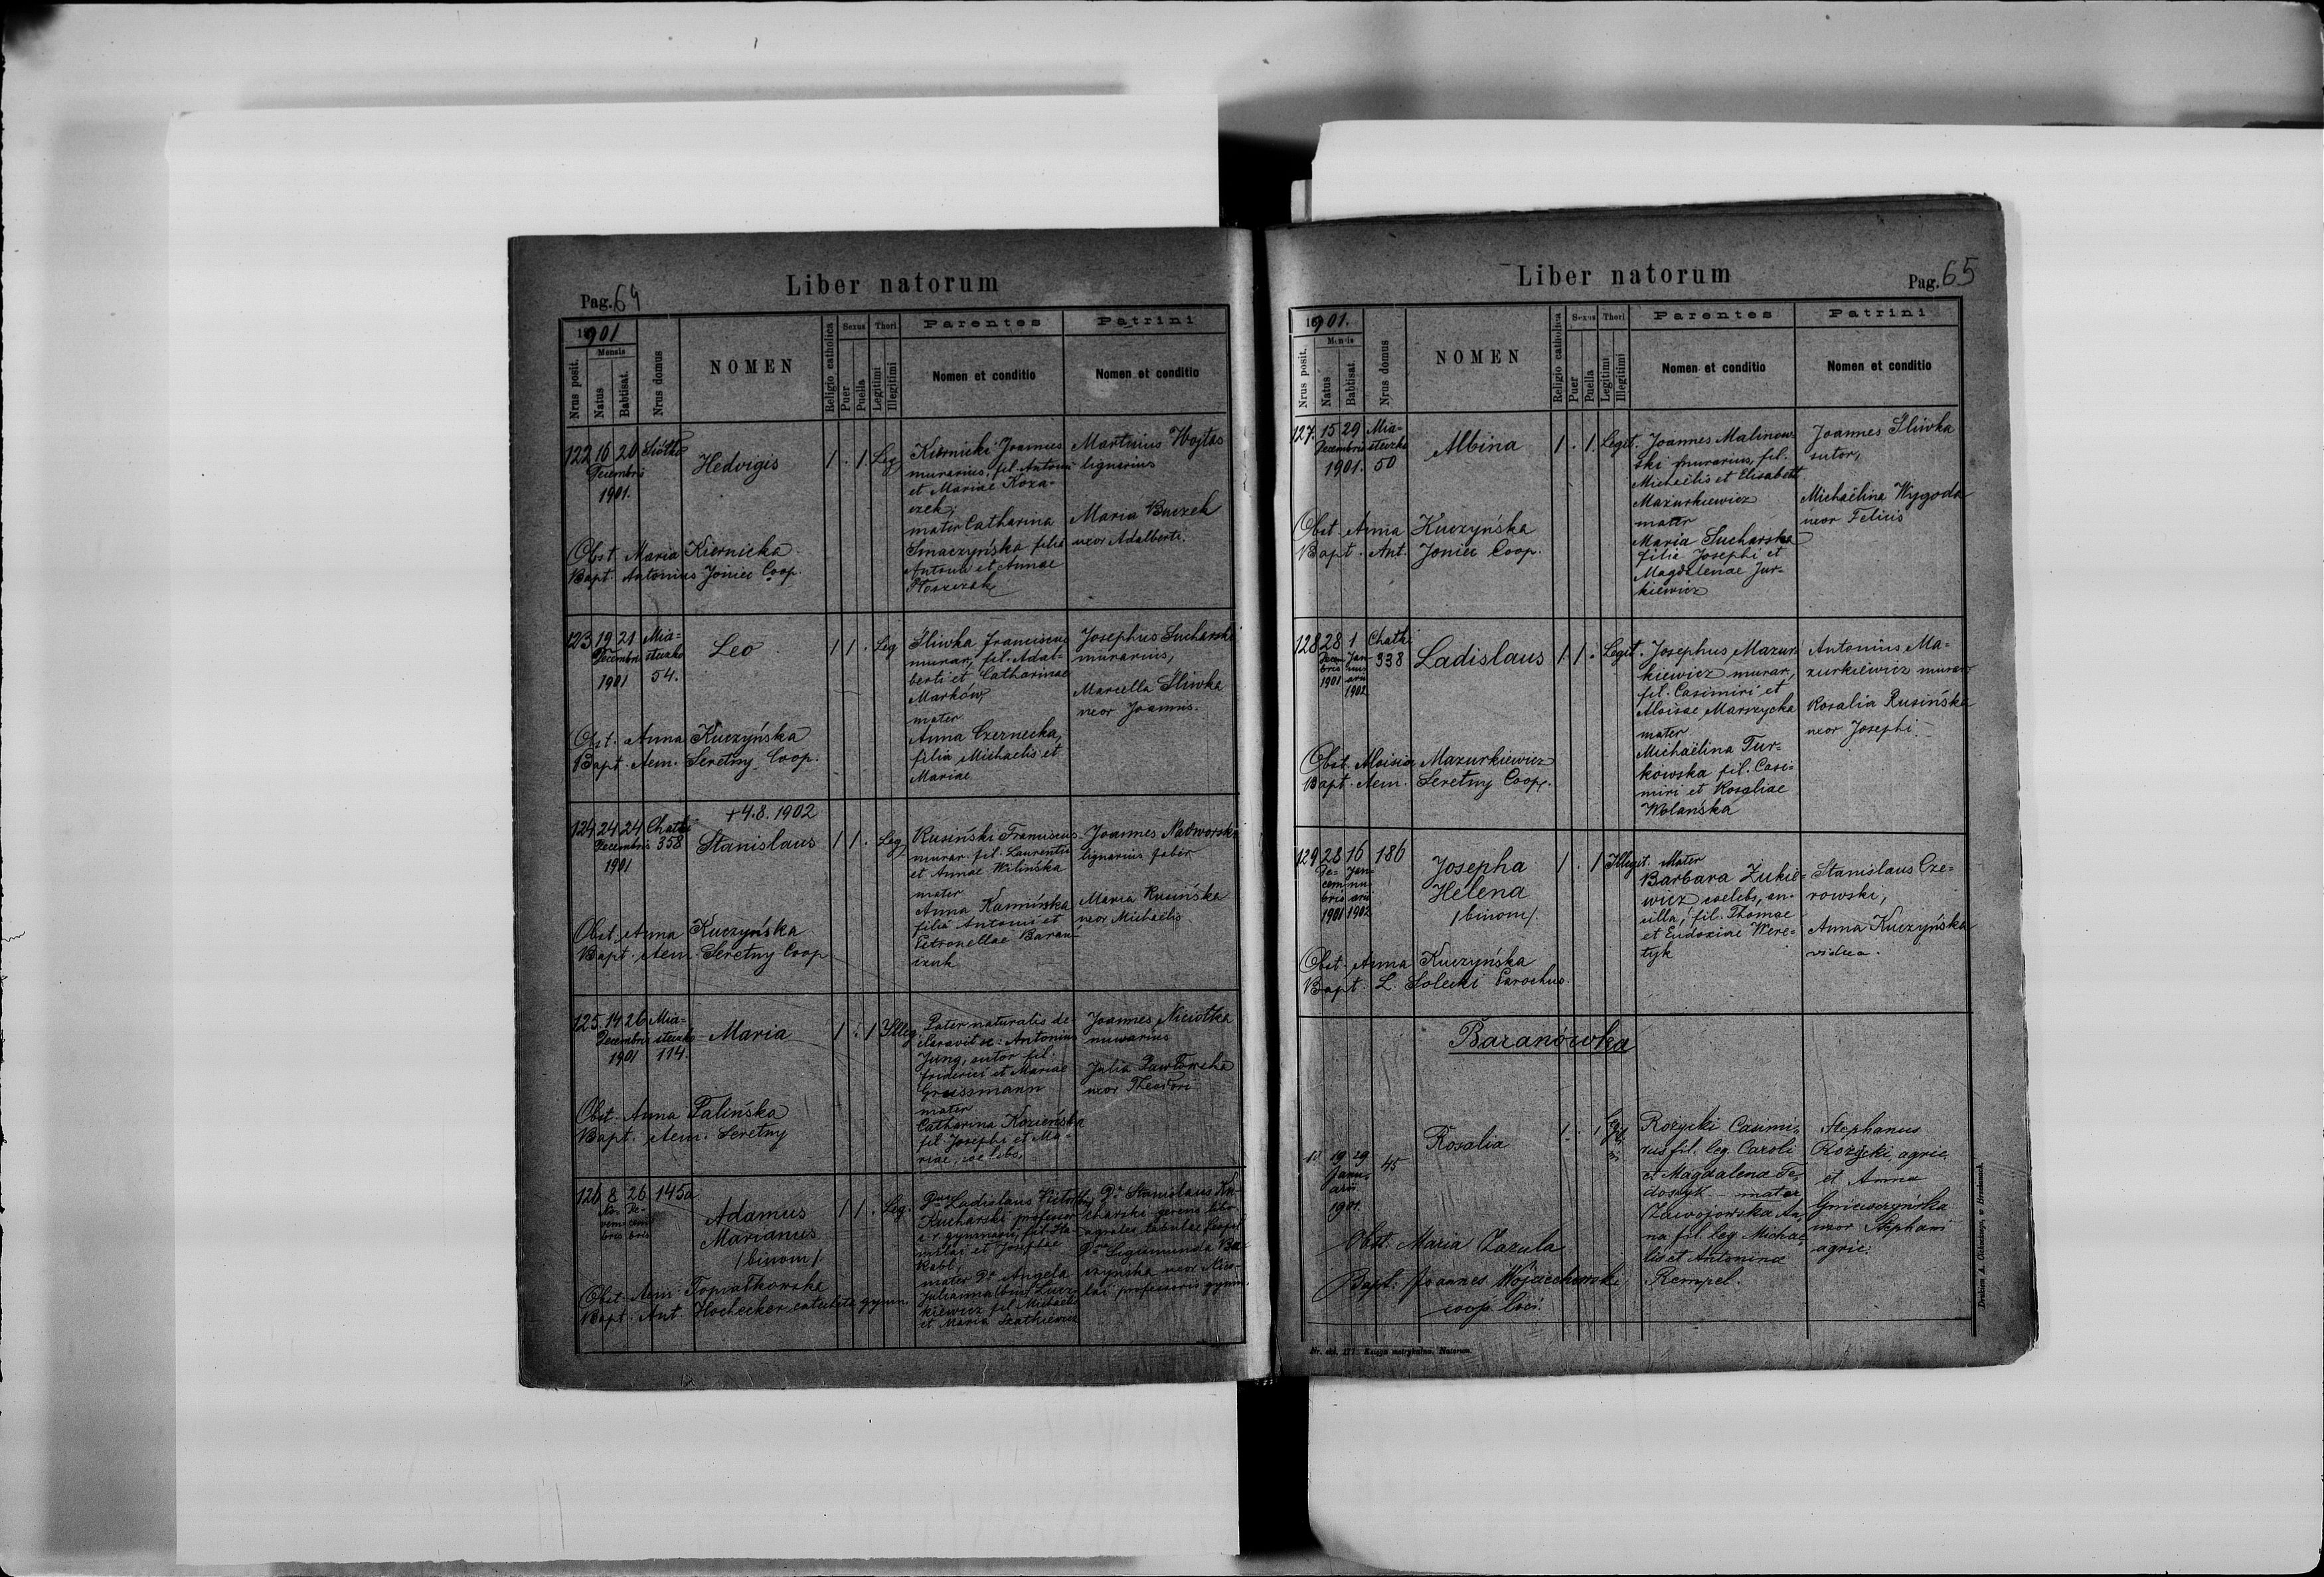 Liber natorum
Pag. 64
1901
Mensis
Nrus posit.
Natus
Babtisat.
Nrus domus
NOMEN
Religio catholica
Sexus
Puer
Puella
Thori
Legitimi
Illegitimi
Parentes
Nomen et conditio
Patrini
Nomen et conditio
122 16 26
Decembris
1901.
Hedvigis
1 . 1. Leg
Kiernicki Joannes
murarius, fil. Antonii
et Mariae Koza-
czek;
mater Catharina
Smaczyńska filia
Antonii et Annae
Martinus Wojtas
lignarius
Maria Buczek
uxor Adalberti.
Obst. Maria Kiernicka
Bapt. Antonius Joniec Coop.
123 19 21 Mia-
Decembris steczko
1901 54.
Leo
1 1 . Leg
Śliwka Franciscus
murar, fil. Adal-
berti et Catharinae
Marków,
mater
Anna Czernecka,
filia Michaelis et
Mariae
Josephus Sucharski
murarius,
Marcella Śliwka
uxor Joannis.
Obst. Anna Kuczyńska
Bapt. Aem. Seretny Coop.
+4.8.1902
124 24 24 Chatki
Decembris 358
1901
Stanislaus
1 1 . Leg
Rusiński Franciscus
murar. fil. Laurentii
et Annae Wilińska
mater
Anna Kamińska
filia Antonii et
Petronellae Baran-
czuk
Joannes Nadworski
lignarius faber
Maria Rusińska
uxor Michaëlis
Obst. Anna Kuczyńska
Bapt. Aem. Seretny Coop
125 14 26 Mia-
Decembris steczko
1901 114.
Maria
1 . 1 Illeg.
Pater naturalis de-
claravit se: Antonius
Jung, sutor fil.
Friderici et Mariae
Graessmann
mater
Catharina
fil Josephi et Ma-
riae, coelebs,
Joannes
murarius
Julia
uxor Theodori
Obst. Anna Palińska
Bapt. Aem. Seretny
126 8 26 145a
No- De-
vem- cem-
bris bris
Adamus
Marianus
/binom/
1 1 . Leg.
Ladislaus
Kucharski professor
c. r. gymnasii, fil. Sta-
nislai et Josephae
mater Dr Angela
Julianna (bin)
kiewicz fil Michaëlis
et Maria
Dr Stanislaus Ku-
charski gerens libr.
Sigismunda Ba-
czyńska uxor Nico-
lai professoris gymn.
Obst. Aem. Topratkowska
Bapt. Ant. Hochecker, catecheta gymn
Liber natorum
Pag. 65
1901.
Mensis
Nrus posit.
Natus
Babtisat.
Nrus domus
NOMEN
Religio catholica
Sexus
Puer
Puella
Thori
Legitimi
Illegitimi
Parentes
Nomen et conditio
Patrini
Nomen et conditio
127. 15 29 Mia-
Decembris steczko
1901. 50
Albina
1 . 1. Legit.
Joannes Malinow-
ski murarius, fil.
Michaëlis et Elisabeth
Mazurkiewicz
mater
Maria Sucharska
filia Josephi et
Magdalenae Jur-
kiewicz
Joannes Śliwka
sutor,
Michaëlina Wygoda
uxor Felicis
Obst. Anna Kuczyńska
Bapt. Ant. Joniec Coop.
128 28 1 Chatki
Decem- Jan- 338
bris nu-
1901 arii
1902
Ladislaus
1 1 . Legit.
Josephus Mazur-
kiewicz murar,
fil. Casimiri et
Aloisae Marszycka
mater
Michaëlina Tur-
kowska fil. Casi-
miri et Rosaliae
Wolańska
Antonius Ma-
zurkiewicz murar
Rosalia Rusińska
uxor Josephi
Obst. Aloisia Mazurkiewicz
Bapt. Aem. Seretny Coop.
129 28 16 186
De- Jan-
cem- nu-
bris arii
1901 1902
Josepha
Helena
/binom/
1 . 1 Illegit.
Mater
Barbara Żukie-
wicz coelebs, an-
cilla, fil. Thomae
et Eudoxiae Were-
tyk
Stanislaus Cze-
rowski,
Anna Kuczyńska
vidua.
Obst. Anna Kuczyńska
Bapt. L. Solecki Parochus.
Baranówka
1. 19 29 45
Janu-
arii
1901.
Rosalia
1 . 1
Rożycki Casimi-
rus fil. leg. Caroli
et Magdalena Fe-
doszyk mater
Zawojowska An-
na fil. leg. Michae-
lis et Antonina
Rempel.
Stephanus
Rożycki agric.
et Anna
uxor Stephani
agric.
Obst. Maria Zazula
Bapt. Joannes Wojciechowski
coop. loci.
Nr. skl. 177. Księga metrykalna. Natorum.